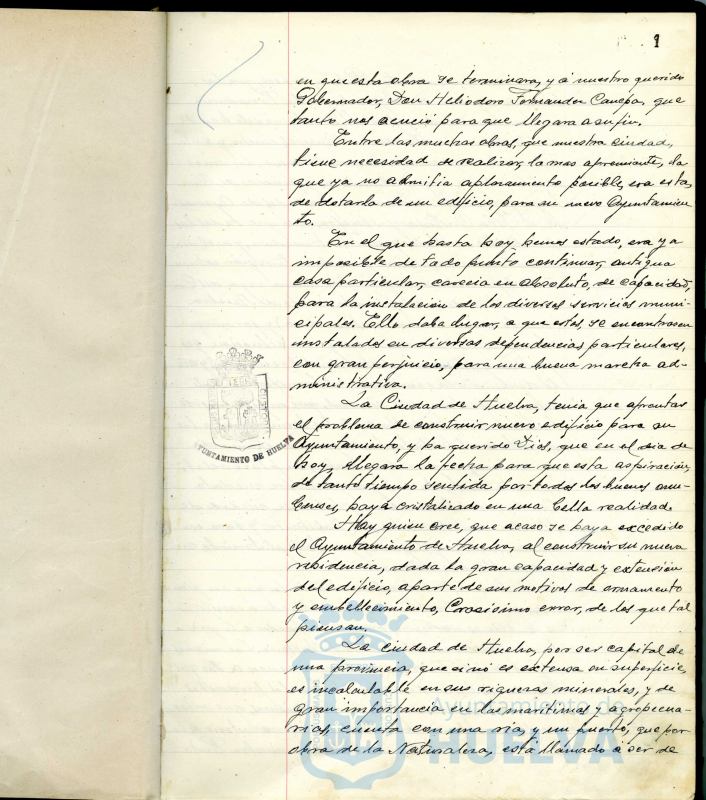 1
en que esta obra se terminara, y á nuestro querido
Gobernador, Don Heliodoro Fernandez Canepa, que
tanto nos acució para que llegara a su fin.
Entre las muchas obras, que nuestra ciudad,
tiene necesidad de realizar, la mas apremiante, la
que ya no admitia aplazamiento posible, era esta,
de dotarla de un edificio, para su nuevo Ayuntamien
to.
En el que hasta hoy hemos estado, era ya
imposible de todo punto continuar, antigua
casa particular, carecia en absoluto, de capacidad,
para la instalacion de los diversos servicios muni-
cipales. Ello daba lugar, a que estos, se encontrasen
instalados en diversas dependencias particulares,
con gran perjuicio, para una buena marcha ad-
ministrativa.
La Ciudad de Huelva, tenia que afrontar
el problema de construir nuevo edificio para su
Ayuntamiento, y ha querido Dios, que en el dia de
hoy, llegara la fecha para que esta aspiracion,
de tanto tiempo sentida por todos los buenos onu-
benses, haya cristalizado en una bella realidad.
Hay quien cree, que acaso se haya excedido
el Ayuntamiento de Huelva, al construir su nueva
residencia, dada la gran capacidad y extension
del edificio, aparte de sus motivos de ornamento
y embellecimiento, Crasisimo error, de los que tal
piensan.
La ciudad de Huelva, por ser capital de
una provincia, que si no es extensa en superficie,
es incalculable en sus riquezas minerales, y de
gran importancia en las maritimas y agropecua-
rias, cuenta con una ria, y un puerto, que por
obra de la Naturaleza, está llamado a ser de
AYUNTAMIENTO DE HUELVA
Ayuntamiento de
HUELVA